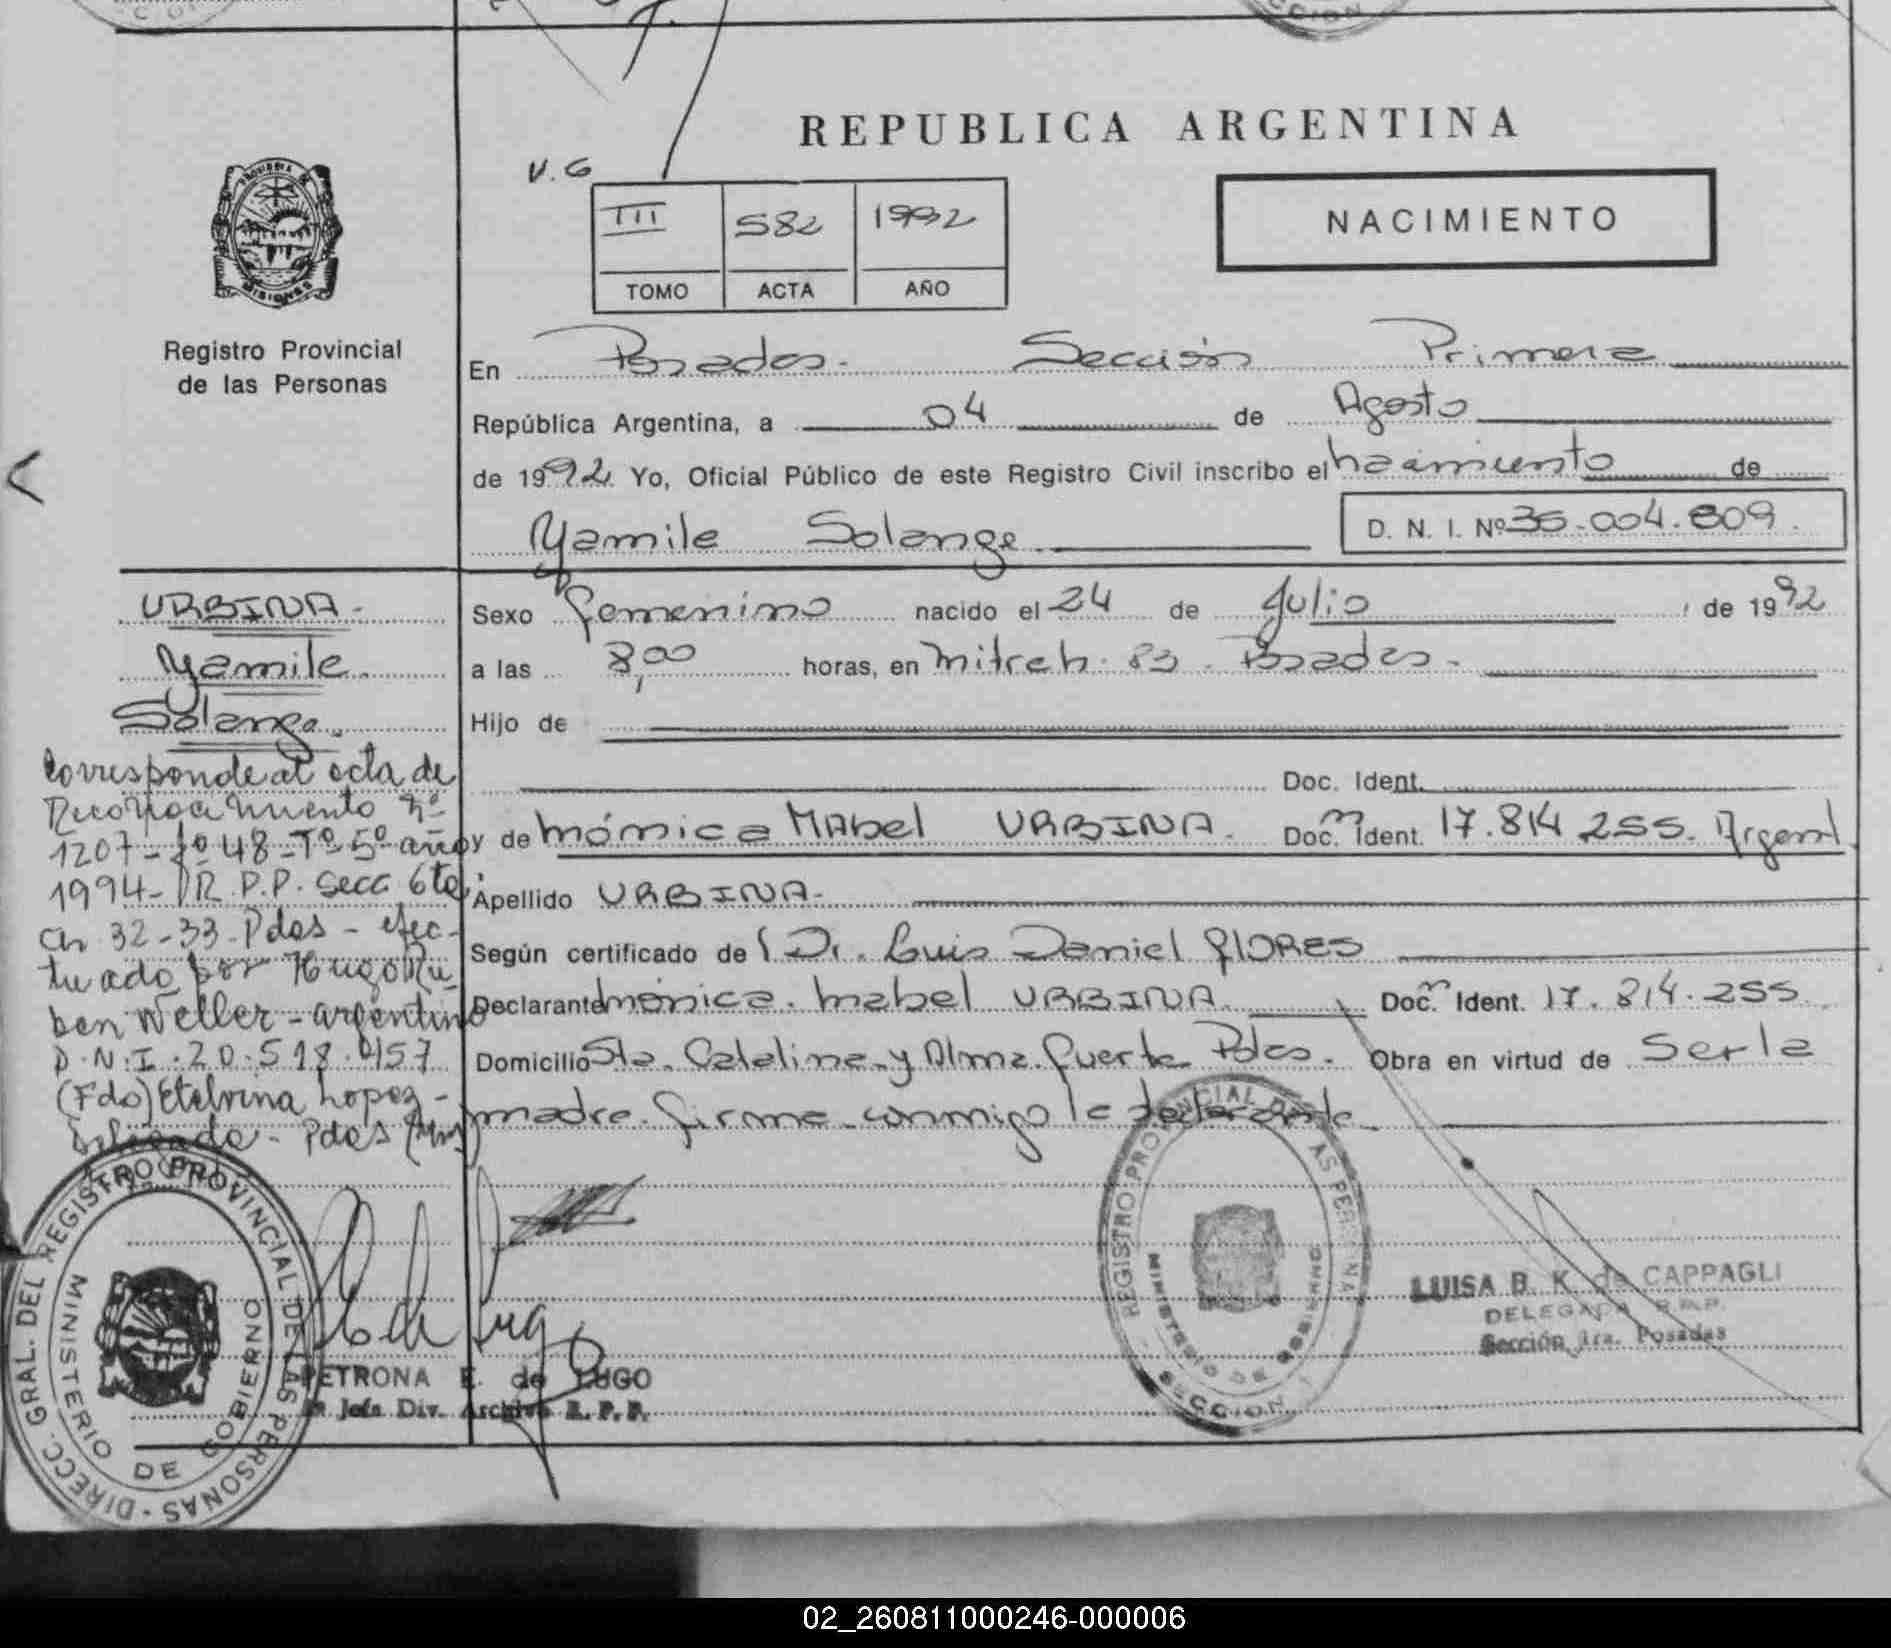 REPUBLICA ARGENTINA
V.G
III 582 1992
TOMO ACTA AÑO
NACIMIENTO
MISIONES
Registro Provincial
de las Personas
En Posadas. Sección Primera
República Argentina, a 04 de Agosto
de 1992 Yo, Oficial Público de este Registro Civil inscribo el nacimiento de
Yamile Solange
D. N. I. Nº 36.004.809.
URBINA.
Yamile.
Solange.
Corresponde al acta de
Reconocimiento nº
1207-fº 48-Tº 5º año
1994- R.P.P. Secc 6ta.
Ch 32-33-Pdas - efec-
tuado por Hugo Ru
ben Weller - argentino
D.N.I. 20.518.457
(Fdo) Etelvina Lopez -
Delegada - Pdas
Sexo femenino nacido el 24 de Julio de 1992
a las 8,00 horas, en Mitre h. 83. Posadas.
Hijo de
Doc. Ident.
y de Mónica Mabel URBINA. Doc. Ident. 17.814.255. Argent.
Apellido URBINA.
Según certificado de Dr. Luis Daniel FLORES
Declarante Mónica Mabel URBINA. Doc. Ident. 17.814.255.
Domicilio Sta. Catalina y Alma fuerte Pdas. Obra en virtud de Ser la
madre. firma conmigo la declarante.
REGISTRO PROVINCIAL DE LAS PERSONAS
MINISTERIO DE GOBIERNO
SECCION 1
LUISA B. K. de CAPPAGLI
DELEGADA R.P.P.
Sección 1ra. Posadas
DIRECC. GRAL. DEL REGISTRO PROVINCIAL DE LAS PERSONAS
MINISTERIO DE GOBIERNO
PETRONA E. de LUGO
Jefa Div. Archivo R.P.P.
02_260811000246-000006